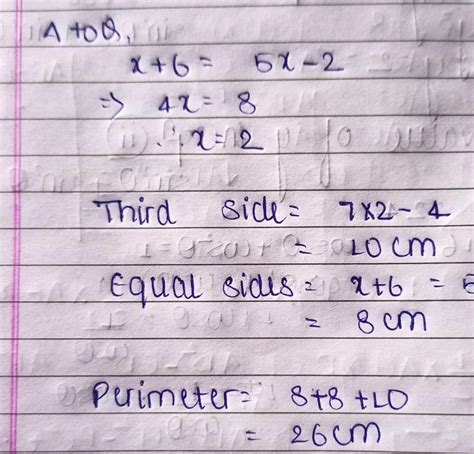 A to Q,
x+6 = 5x-2
⇒ 4x = 8
∴ x = 2
Third side = 7x2-4
= 10 cm
Equal sides = x+6 =
= 8 cm
Perimeter = 8+8+10
= 26 cm